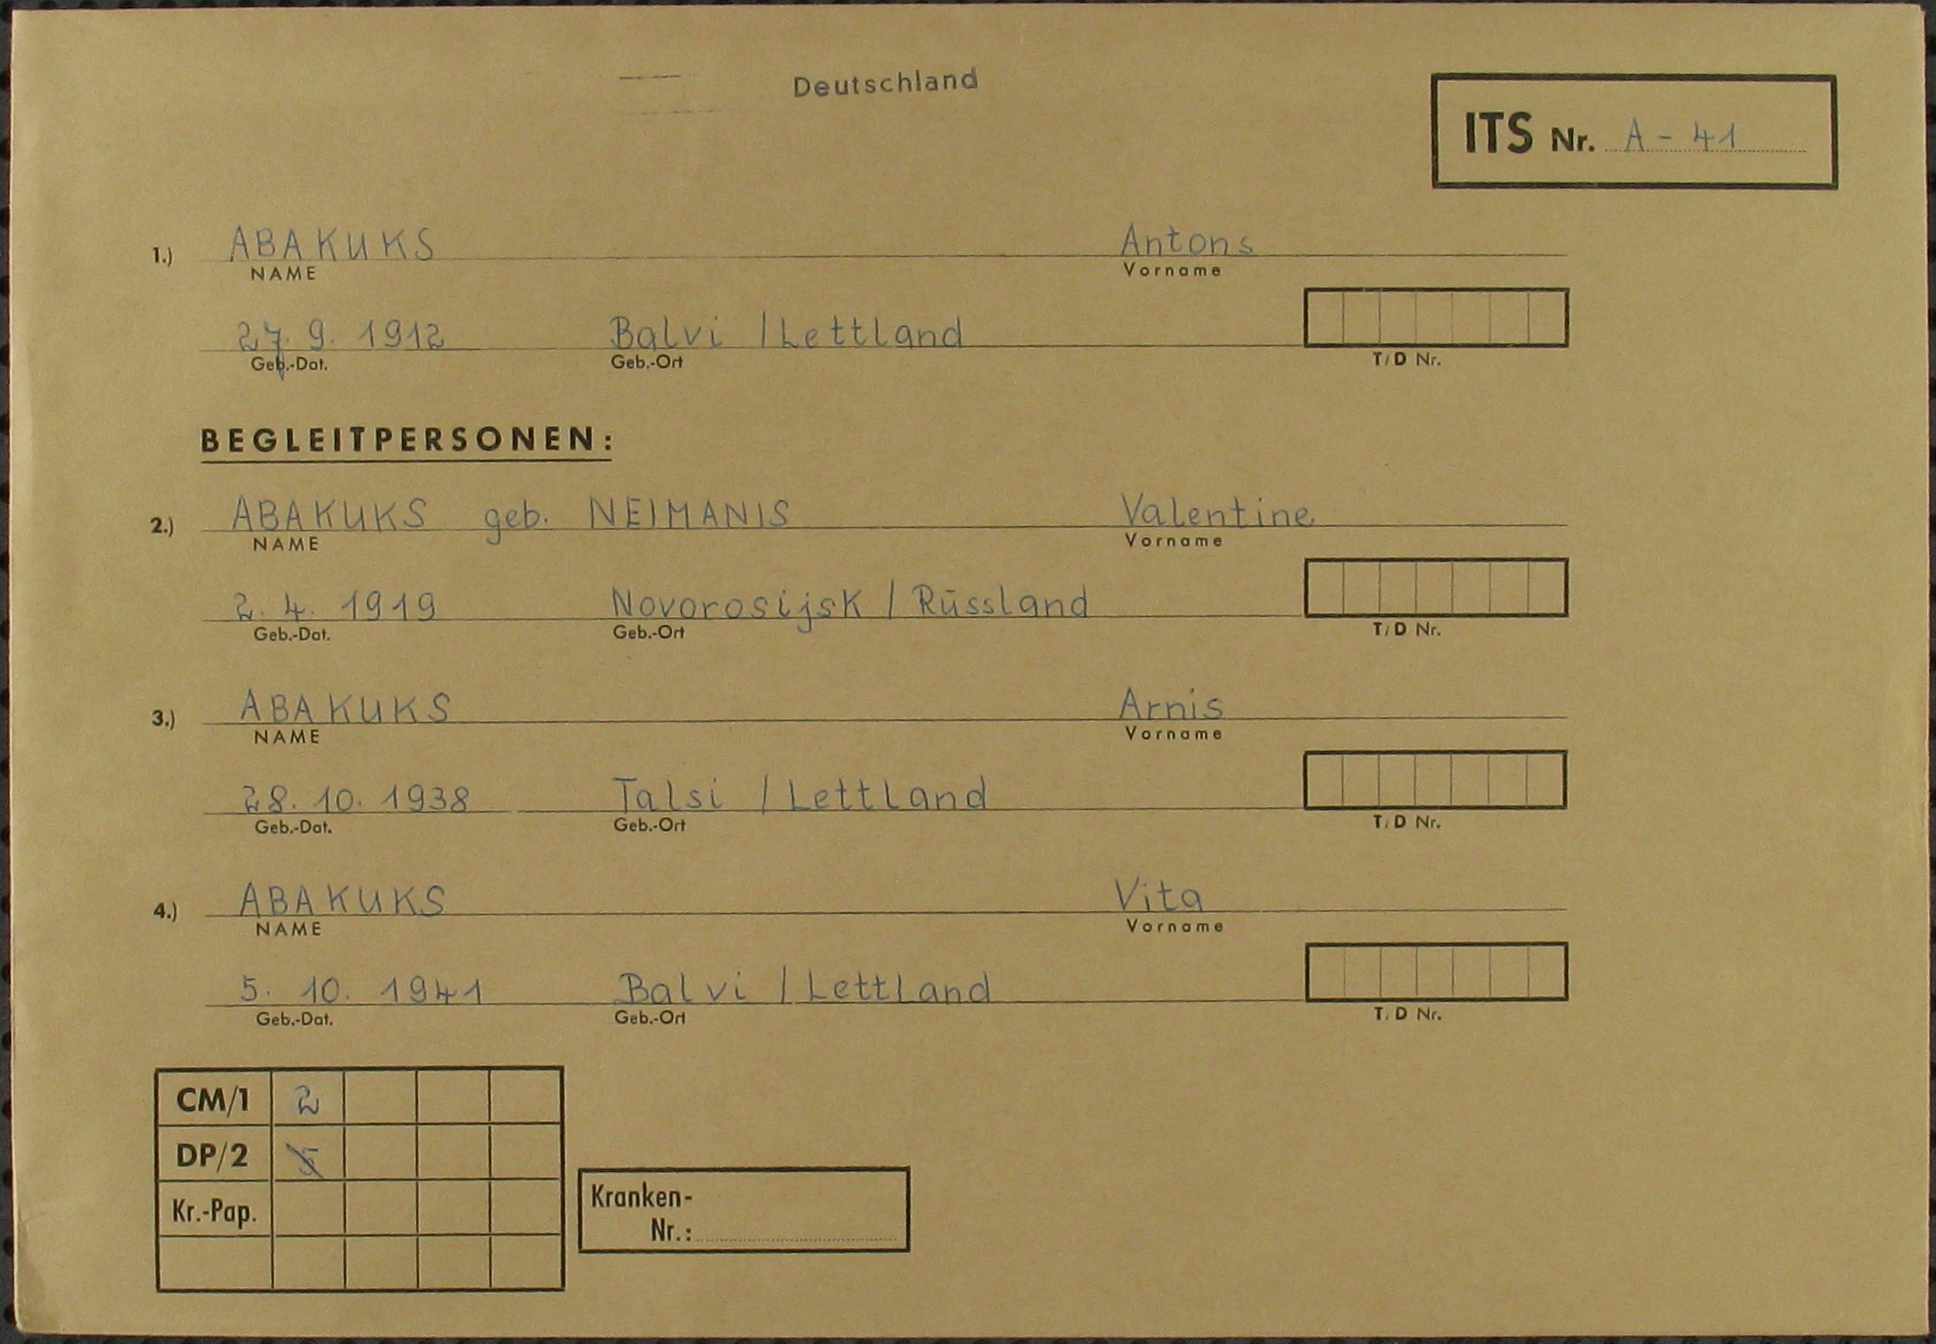 Deutschland
ITS Nr. A - 41
1.) ABAKUKS Antons
NAME Vorname
27. 9. 1912 Balvi / Lettland
Geb.-Dat. Geb.-Ort T/D Nr.
BEGLEITPERSONEN:
2.) ABAKUKS geb. NEIMANIS Valentine
NAME Vorname
2. 4. 1919 Novorosijsk / Rūssland
Geb.-Dat. Geb.-Ort T/D Nr.
3.) ABAKUKS Arnis
NAME Vorname
28. 10. 1938 Talsi / Lettland
Geb.-Dat. Geb.-Ort T/D Nr.
4.) ABAKUKS Vita
NAME Vorname
5. 10. 1941 Balvi / Lettland
Geb.-Dat. Geb.-Ort T/D Nr.
CM/1 2
DP/2 5
Kr.-Pap.
Kranken-
Nr.: